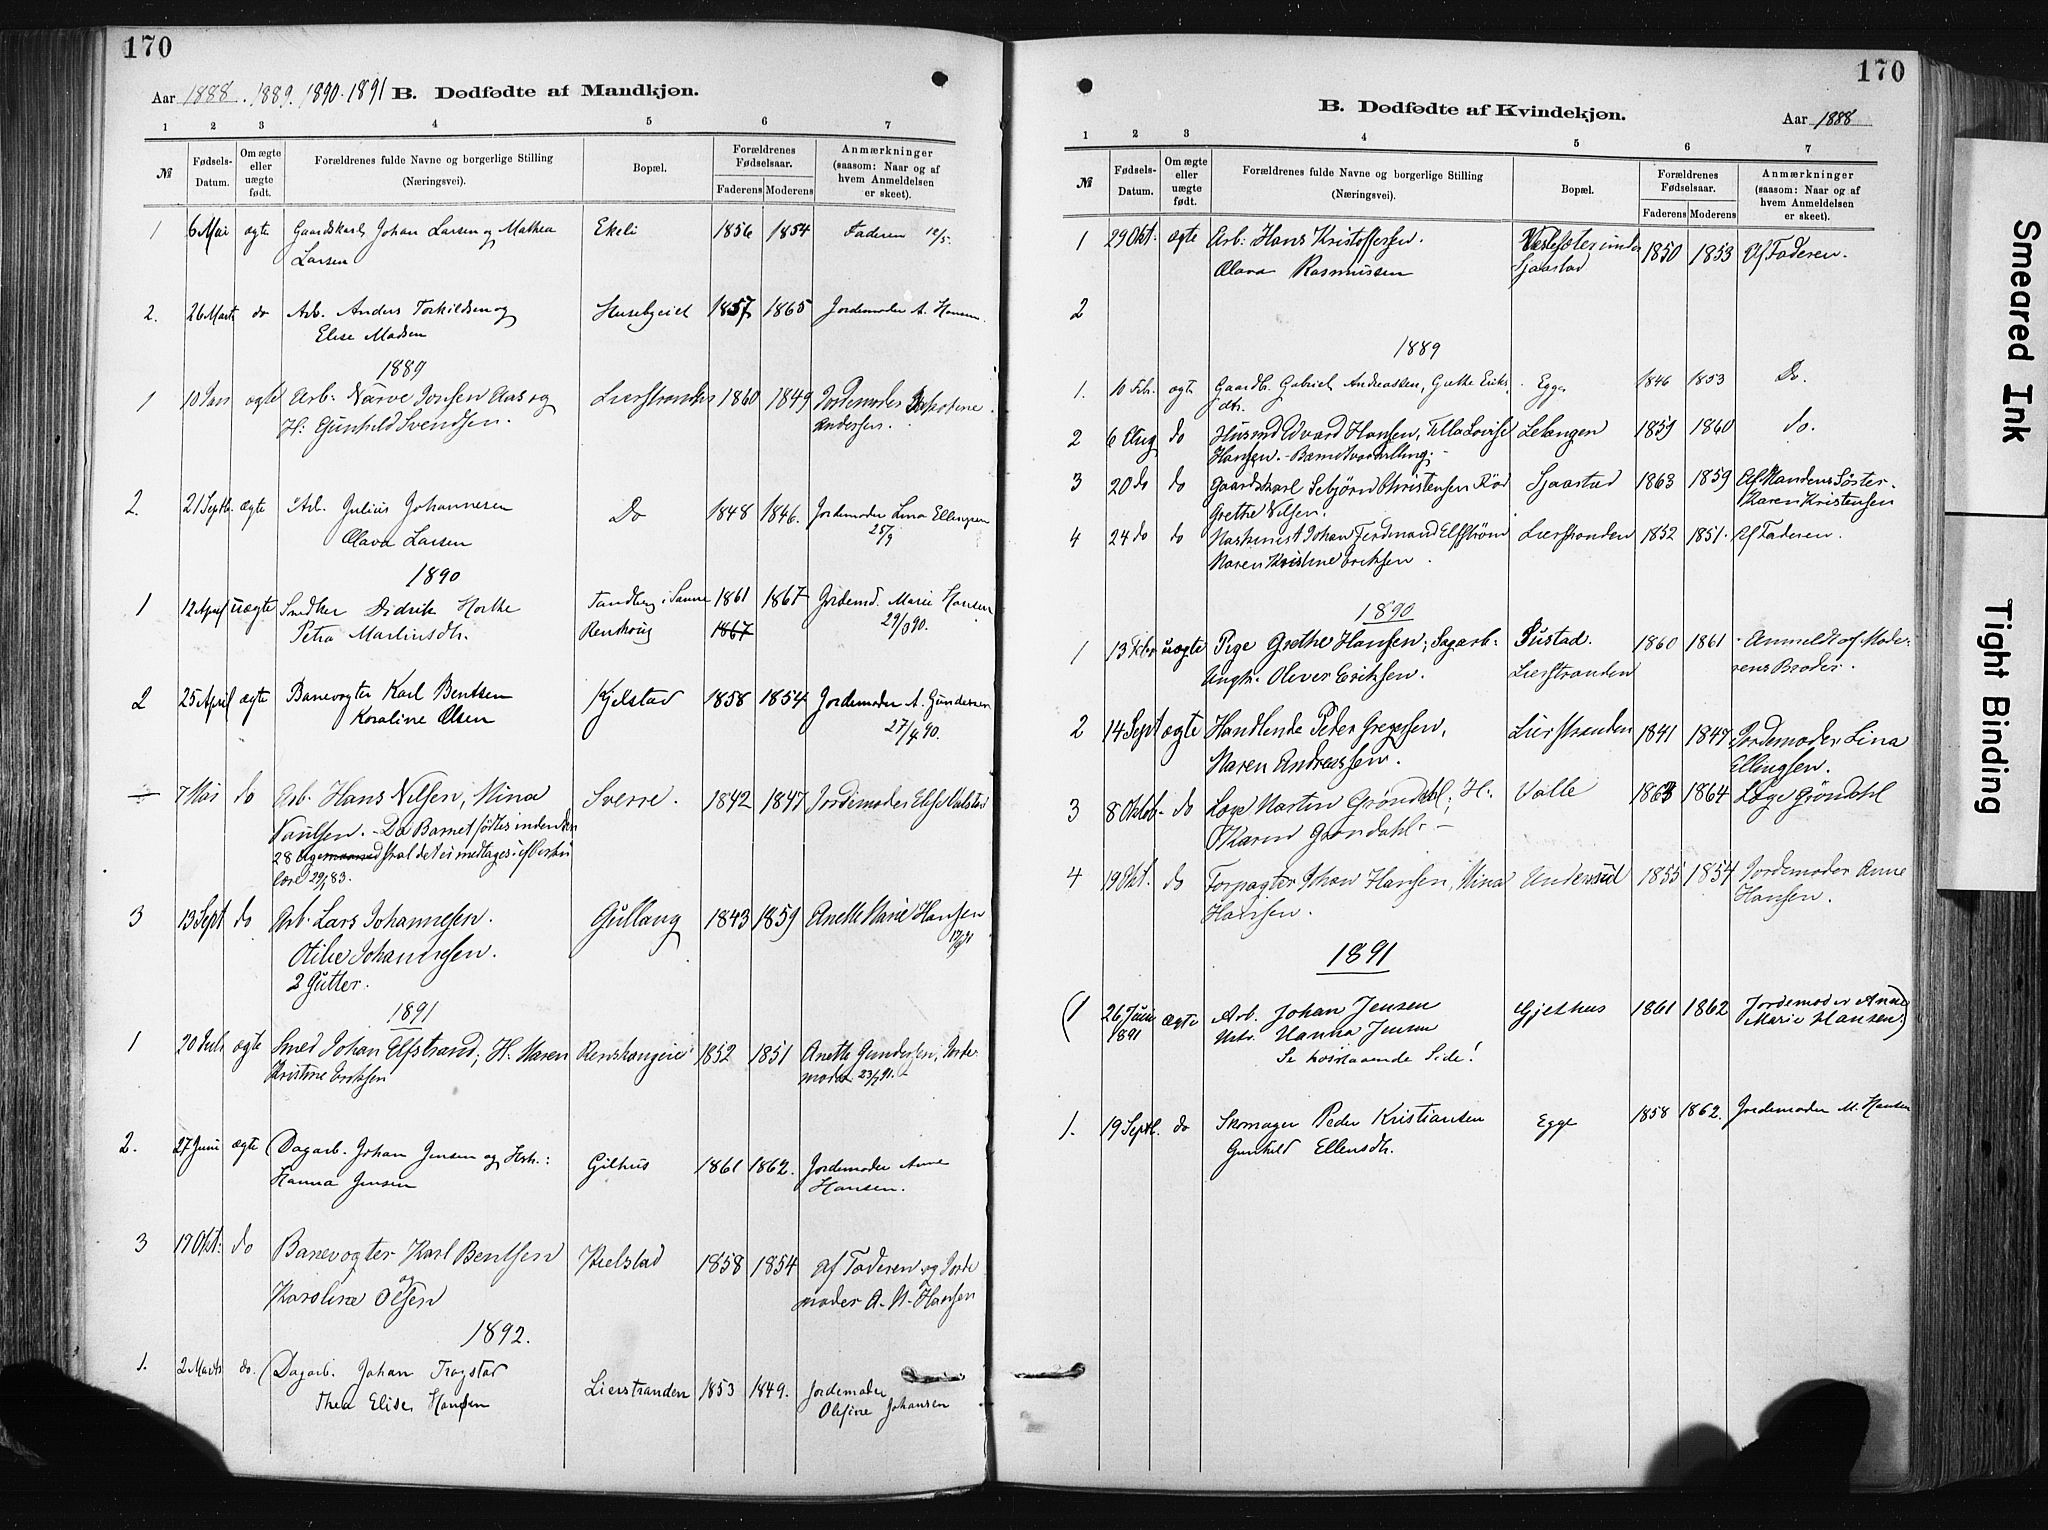 170
Aar 1888. 1889. 1890. 1891 B. Dødfødte af Mandkjøn.
1 2 3 4 5 6 7
№ Fødsels-Datum. Om ægte eller uægte født. Forældrenes fulde Navne og borgerlige Stilling (Næringsvei). Bopæl. Forældrenes Fødselsaar. Faderens Moderens Anmærkninger (saasom: Naar og af hvem Anmeldelsen er skeet).
1 6 Mai ægte Gaardskarl Johan Larsen og Mathea Ekeli 1856 1854 Faderen 12/5.
Larsen
2. 26 Marts do Arb. Anders Torkildsen og Husebyeiet 1857 1865 Jordemoder A. Hansen.
Elise Madsen
1889
1 10 Jan ægte Arb. Narve Jonsen Aas og Lierstranden 1860 1849 Jordemoder
H: Gunhild Svendsen. Andersen.
2. 21 Septb. ægte Arb. Julius Johannesen Do 1848 1846. Jordemoder Lina Ellingsen
Olava Larsen 25/9
1890
1 12 April uægte Snedker Didrik Horthe Tandberg i Sanne 1861 1867 Jordemd. Marie Hansen
Petra Martinsdtr. Renskoug 1867 29/3 90.
2 25 April ægte Banevogter Karl Bentsen Kjelstad 1858 1854 Jordemoder A. Gundersen
Karoline Olsen 27/4 90.
÷ 7 Mai do Arb. Hans Nilsen, Mina Sverre. 1842 1847 Jordemoder Else
Paulsen. - Da Barnet fødtes inden den
28 Uge skal det ei medtages
29/ 83.
3 13 Sept do Arb. Lars Johannesen. Gullaug 1843 1859 Anette Marie Hansen
Otilie Johannesen.
2 Gutter.
1891
1 20 Juli ægte Smed Johan Elfstrand; H. Maren Renskougeie 1852 1851 Anette Gundersen, Jorde-
Kristine Eriksen moder 23/7 91.
2. 27 Juni ægte Dagarb. Johan Jensen og Hstr.: Gilhus 1861 1862. Jordemoder Anne
Hanna Jensen Hansen.
3 19 Okt. do Banevogter Karl Bentsen Kjelstad 1858 1854 Af Faderen og Jorde
og
Karoline Olsen moder A. M. Hansen
1892.
1. 2 Marts do. Dagarb. Johan Trøgstad Lierstranden 1853 1849. Jordemoder
Thea Elise Hansen Olefine Johansen
170
B. Dødfødte af Kvindekjøn. Aar 1888
1 2 3 4 5 6 7
№ Fødsels-Datum. Om ægte eller uægte født. Forældrenes fulde Navne og borgerlige Stilling (Næringsvei). Bopæl. Forældrenes Fødselsaar. Faderens Moderens Anmærkninger (saasom: Naar og af hvem Anmeldelsen er skeet).
1 29 Okt. ægte Arb: Hans Kristoffersen. Vestsæter under 1850 1853 Af Faderen.
Olava Rasmussen Sjaastad
2
1889
1. 10 Feb. ægte Gaardb. Gabriel Andreassen, Grethe Eriks Egge 1846 1853 Do.
dtr.
2 6 Aug do Husmd Edvard Hansen, Tilla Lovise Lelangen 1859 1860 do.
Hansen. -
3 20 do do Gaardskarl Sebjörn Christensen Röd Sjaastad 1863 1859 Af Mandens Söster.
Grethe Nilsen. Maren Kristensen
4 24 do do Maskinist Johan Ferdinand Elfström Lierstranden 1852 1851. Af Faderen.
Maren Kristine Eriksen.
1890
1 13 Febr uægte Pige Grethe Hansen; Sagarb. Gustad. 1860 1861 Anmeldt af Mode-
Ungk. Oliver Eriksen. Lierstranden rens Broder.
2 14 Sept ægte Handlende Peter Gregersen, Lierstranden 1841 1847 Jordemoder Lina
Maren Andreassen. Ellingsen.
3 8 Oktob. do Læge Martin Gröndahl; H: Valle 1863 1864 Læge Gröndahl
Karen Gröndahl. -
4 19 Okt. do Forpagter Johan Hansen, Mina Undersid 1855 1854 Jordemoder Anne
Hansen. Hansen.
1891
(1 26 Juni ægte Arb. Johan Jensen Gjethus 1861 1862 Jordemoder Anne
1891 Hstr. Hanna Jensen Marie Hansen.)
Se hosstaaende Side!
1. 19 Septb. do Skomager Peder Kristiansen Egge 1858 1862. Jordemoder M. Hansen
Gunhild Ellensdtr.
Smeared Ink
Tight Binding